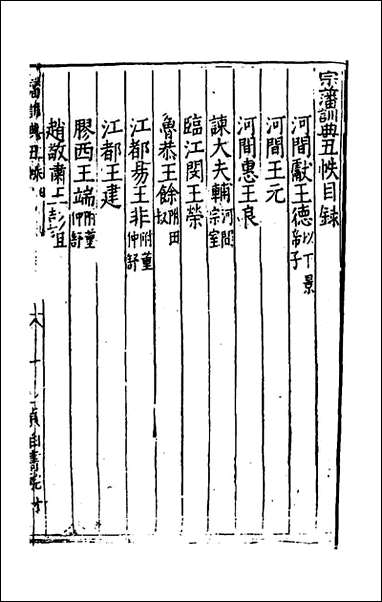 宗藩訓典丑帙目錄
河間獻王德以下景帝子
河間王元
河間惠王良
諫大夫輔河間宗室
臨江閔王榮
魯恭王餘附田叔
江都易王非附董仲舒
江都王建
膠西王端附董仲舒
趙敬肅王彭祖